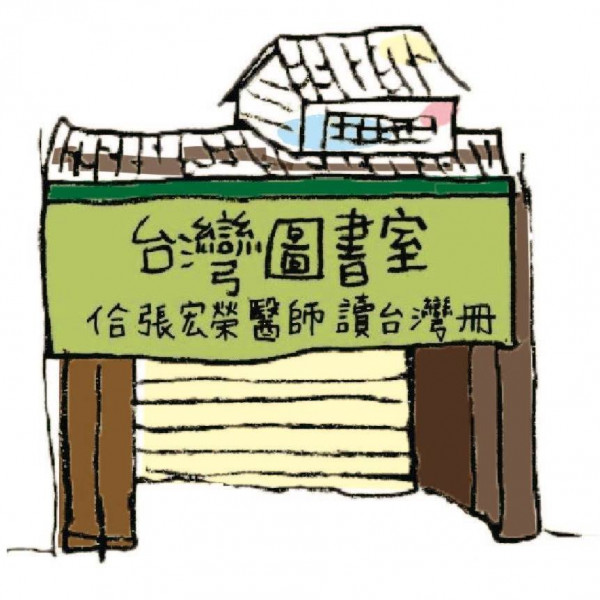 台灣圖書室
佮張宏榮醫師讀台灣冊